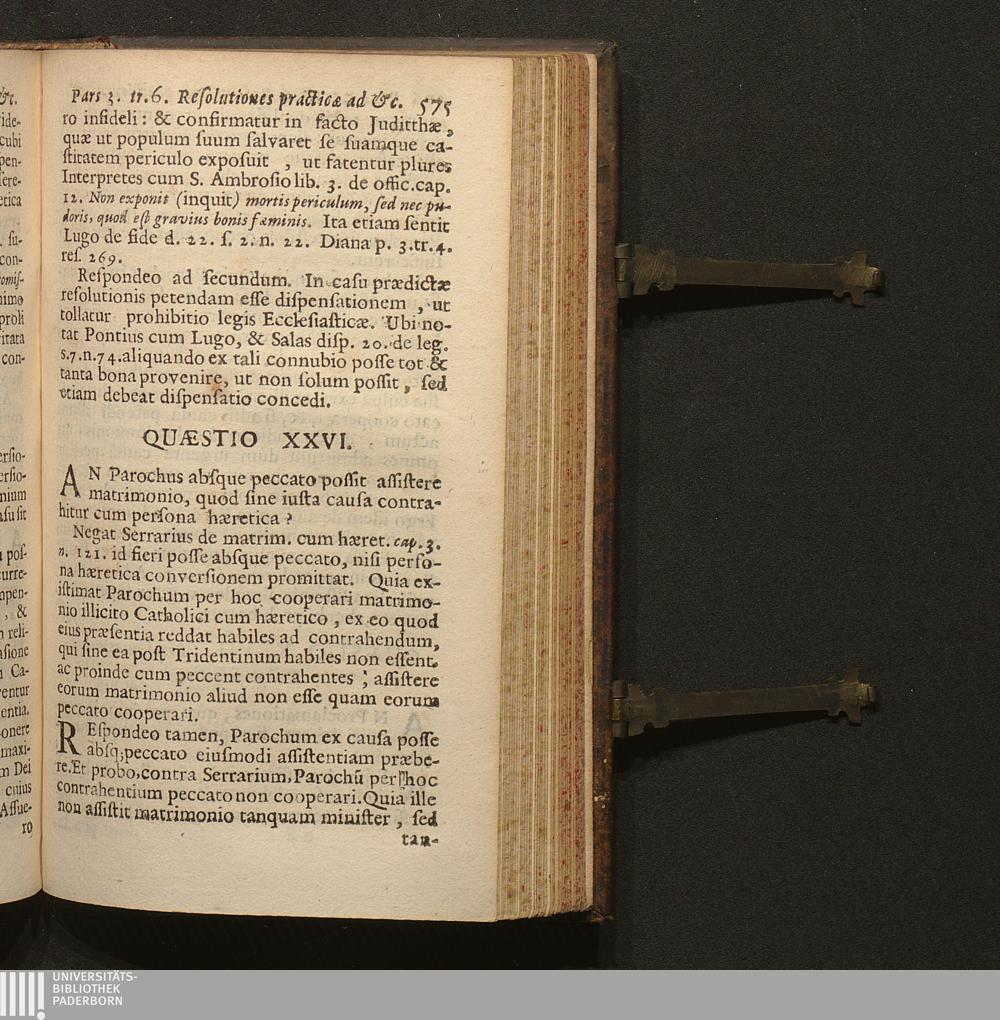 Pars 3. tr. 6. Reſolutiones practicæ ad &c. 575
ro infideli: & confirmatur in facto Juditthæ,
quæ ut populum ſuum ſalvaret ſe ſuamque ca-
ſtitatem periculo expoſuit , ut fatentur plures
Interpretes cum S. Ambroſio lib. 3. de offic. cap.
12. Non exponit (inquit) mortis periculum, ſed nec pu-
doris, quod eſt gravius bonis fæminis. Ita etiam ſentit
Lugo de fide d. 22. ſ. 2. n. 22. Diana p. 3. tr. 4.
reſ. 269.
Reſpondeo ad ſecundum. In caſu prædictæ
reſolutionis petendam eſſe diſpenſationem , ut
tollatur prohibitio legis Eccleſiaſticæ. Ubi no-
tat Pontius cum Lugo, & Salas diſp. 20. de leg.
s. 7. n. 74. aliquando ex tali connubio poſſe tot &
tanta bona provenire, ut non ſolum poſſit , ſed
etiam debeat diſpenſatio concedi.
QUÆSTIO XXVI.
AN Parochus abſque peccato poſſit aſſiſtere
matrimonio, quod ſine iuſta cauſa contra-
hitur cum perſona hæretica ?
Negat Serrarius de matrim. cum hæret. cap. 3.
n. 121. id fieri poſſe abſque peccato, niſi perſo-
na hæretica converſionem promittat. Quia ex-
iſtimat Parochum per hoc cooperari matrimo-
nio illicito Catholici cum hæretico , ex eo quod
eius præſentia reddat habiles ad contrahendum,
qui ſine ea poſt Tridentinum habiles non eſſent,
ac proinde cum peccent contrahentes ; aſſiſtere
eorum matrimonio aliud non eſſe quam eorum
peccato cooperari.
REſpondeo tamen, Parochum ex cauſa poſſe
abſq; peccato eiuſmodi aſſiſtentiam præbe-
re. Et probo, contra Serrarium, Parochū per hoc
contrahentium peccato non cooperari. Quia ille
non aſſiſtit matrimonio tanquam miniſter , ſed
tan-
UNIVERSITÄTS-
BIBLIOTHEK
PADERBORN